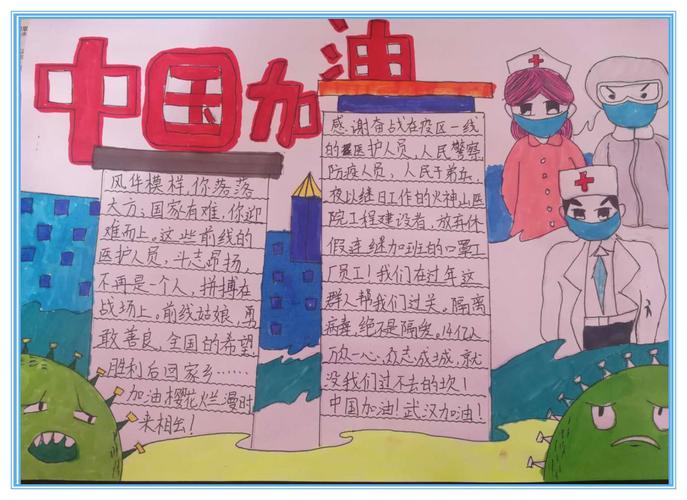 中国加油
风伴模样,你落落
大方;国家有难,你迎
难而上。这些前线的
医护人员,斗志昂扬,
不再是一个人,拼搏在
战场上。前线姑娘,勇
敢善良,全国的希望,
胜利后回家乡……
加油樱花烂漫时
来相出!
感谢奋战在疫区一线
的医护人员,人民警察
防疫人员,人民子弟兵,
夜以继日工作的火神山医
院工程建设者,放弃休
假连继加班的口罩工
厂员工!我们在过年这
群人帮我们过关。隔离
病毒,绝不是隔爱。14亿人
万众一心,众志成城,就
没我们过不去的坎!
中国加油!武汉加油!